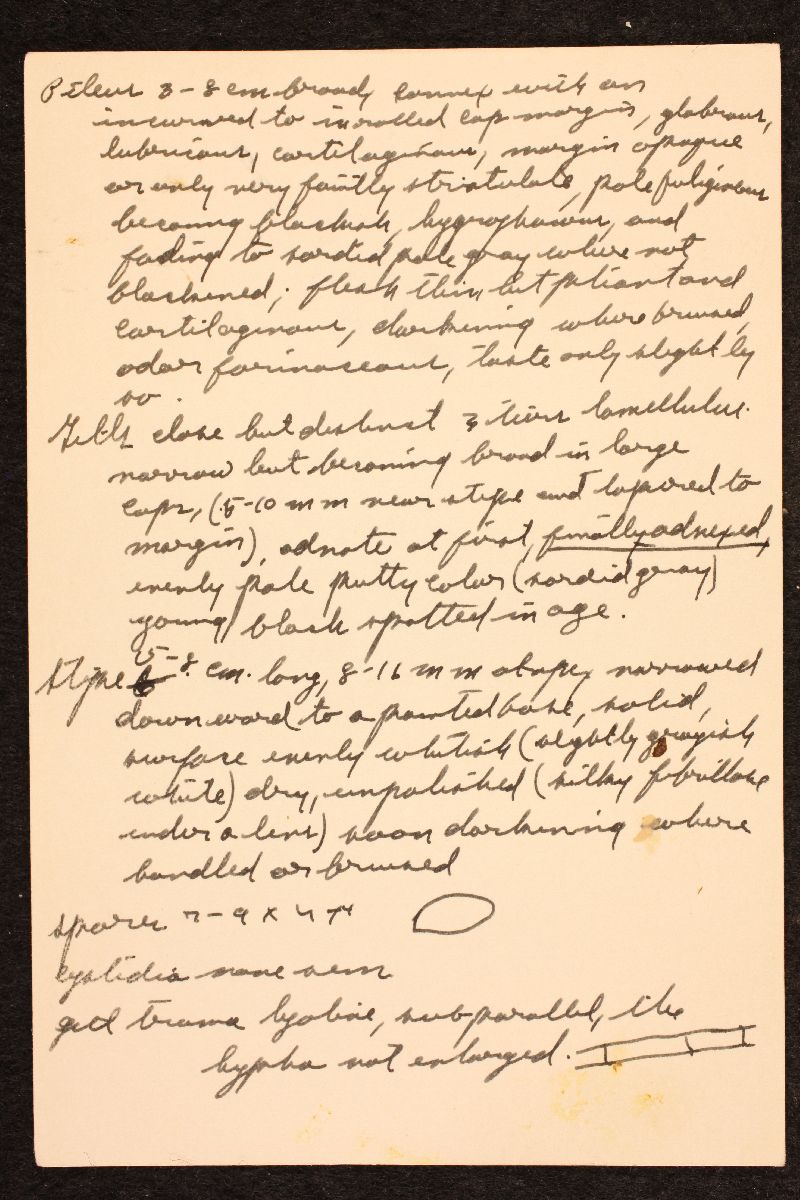 Pileus 3-8 cm broad, convex with an
incurved to inrolled cap margin, glabrous,
lubricous, cartilaginous, margin opaque
or only very faintly striatulate, pale fuliginous
becoming blackish, hygrophanous, and
fading to sordid pale gray where not
blackened; flesh thin but pliant and
cartilaginous, darkening where bruised,
odor farinaceous, taste only slightly
so.
Gills close but distinct 3 tiers lamellulus.
narrow but becoming broad in large
caps, (5-10 mm near stipe and tapered to
margin), adnate at first, finally adnexed,
evenly pale putty color (sordid gray)
young black spotted in age.
Stipe 5-8 cm. long, 8-16 mm at apex narrowed
downward to a pointed base, solid,
surface evenly whitish (slightly grayish
white) dry, unpolished (silky fibrillose
under a lens) soon darkening where
handled or bruised
spores 7-9 x 4
cystidia none seen
gill trama hyaline, subparallel, the
hypha not enlarged.